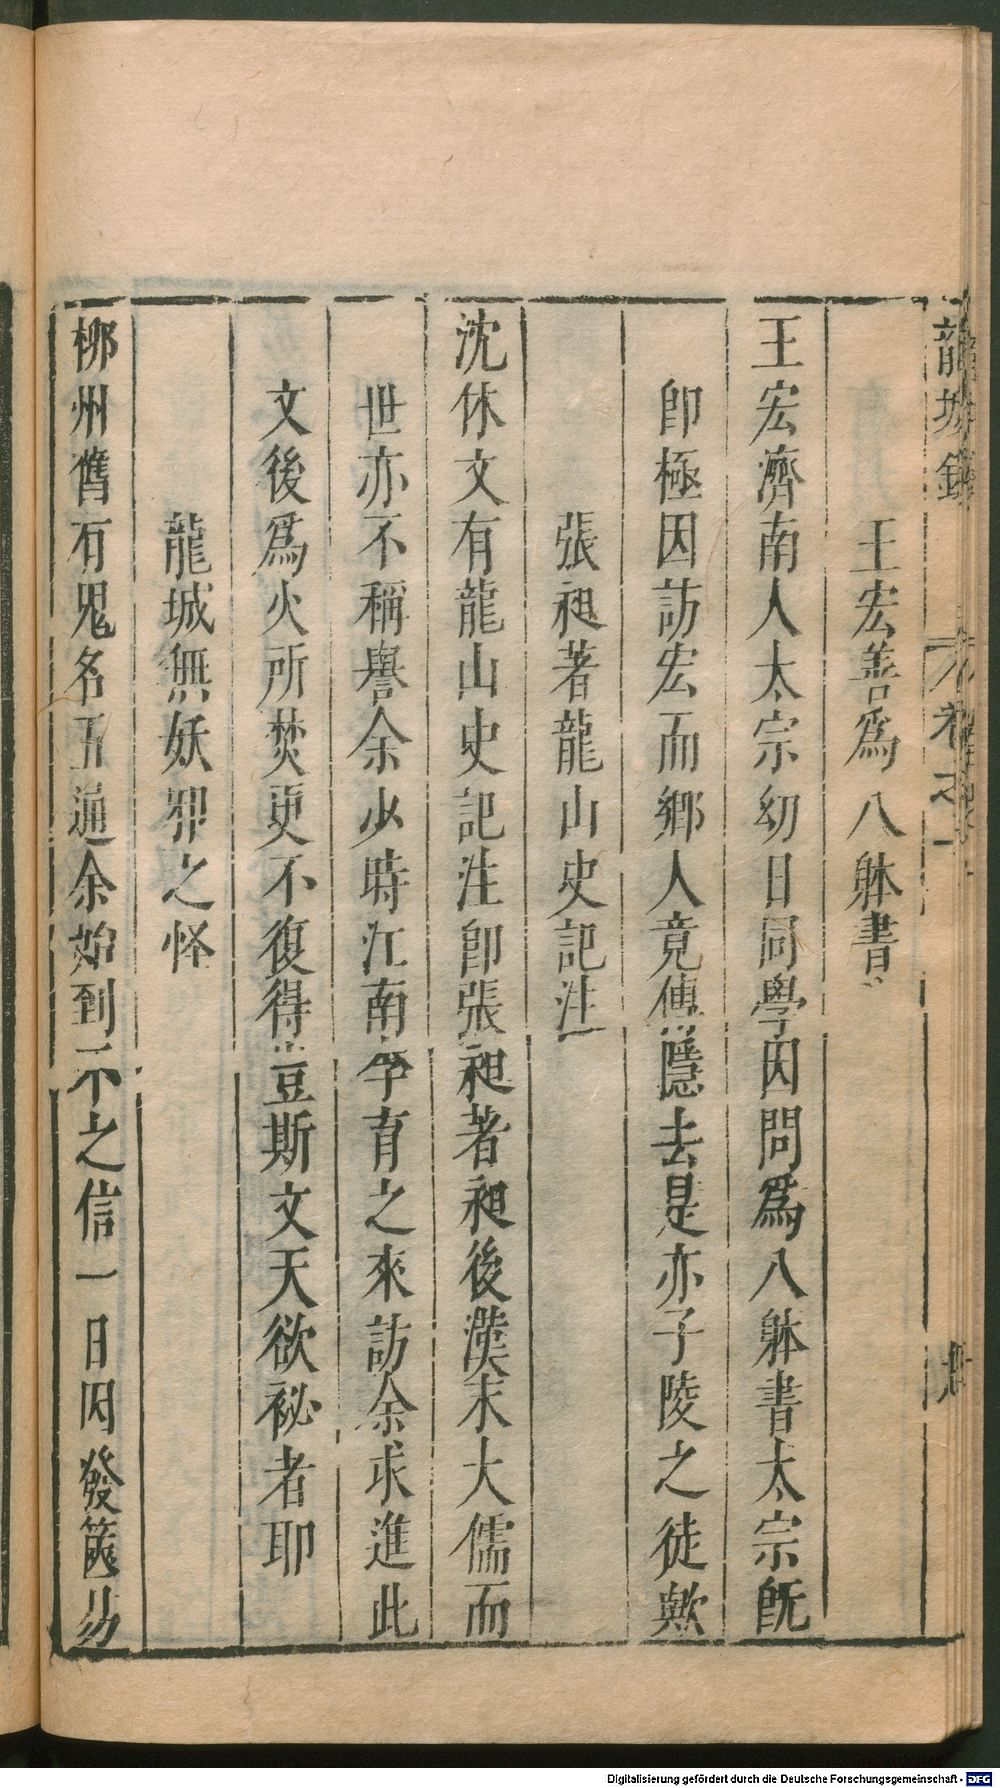 龍城錄 卷之一
王宏善爲八躰書
王宏濟南人太宗幼日同學因問爲八躰書太宗旣
卽極因訪宏而鄉人竟傳隱去是亦子陵之徒歟
張昶著龍山史記注
沈休文有龍山史記注卽張昶著昶後漢末大儒而
世亦不稱譽余少時江南李育之來訪余求進此
文後爲火所焚更不復得豈斯文天欲祕者耶
龍城無妖邪之怪
柳州舊有鬼名五通余始到不之信一日因發篋易
Digitalisierung gefördert durch die Deutsche Forschungsgemeinschaft - DFG